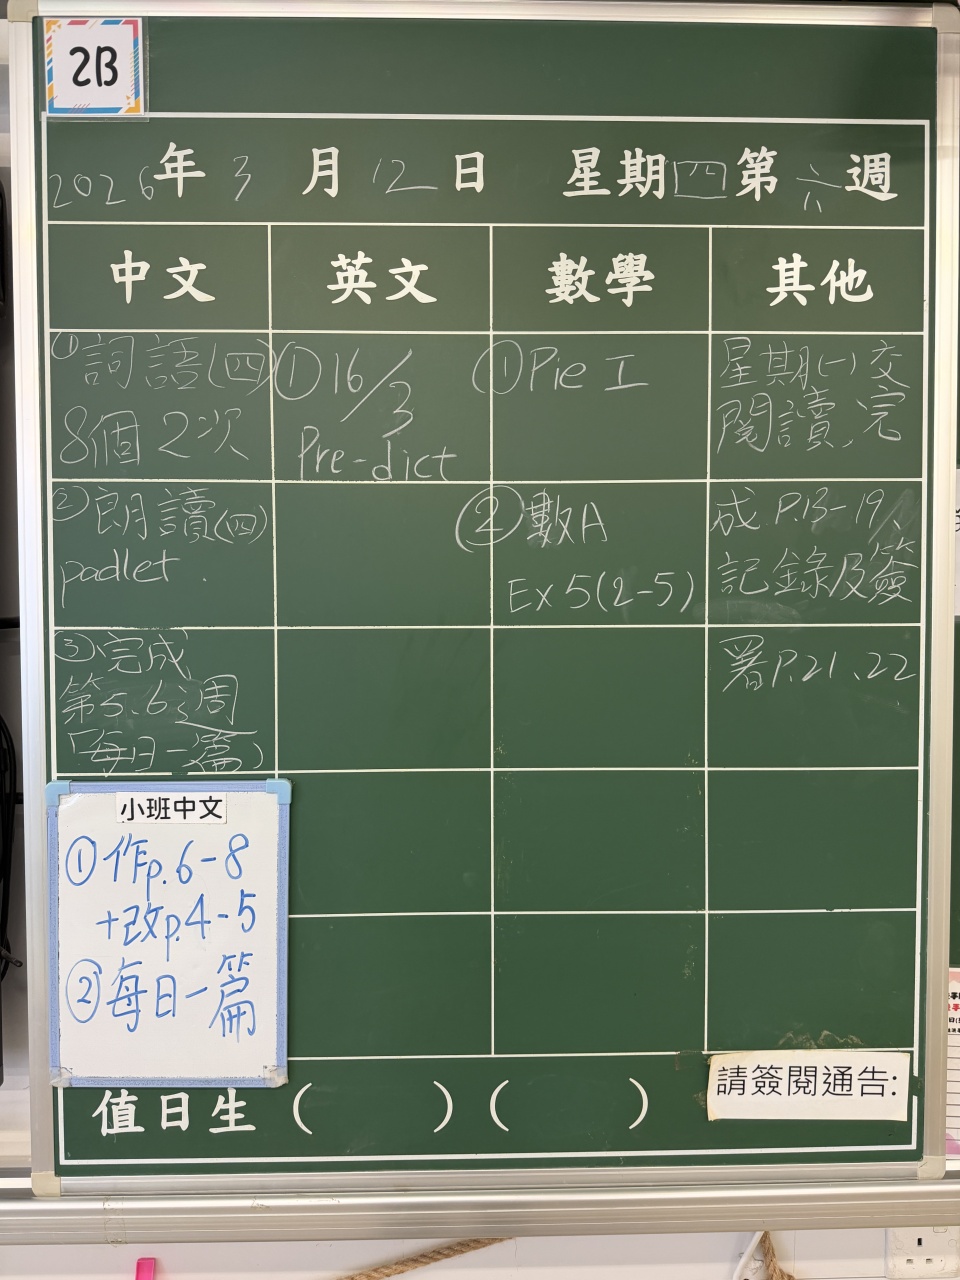 2B
2026年3月12日 星期四第六週
中文 英文 數學 其他
①詞語(四)
8個2次
②朗讀(四)
padlet.
③完成
第5、6週
「每日一篇」
①16/3
Pre-dict
①Pie I
②數A
Ex 5(2-5)
星期(一)交
閱讀、完
成P.13-19、
記錄及簽
署P.21、22
小班中文
①作p.6-8
+改p.4-5
②每日一篇
值日生( )( )
請簽閱通告: